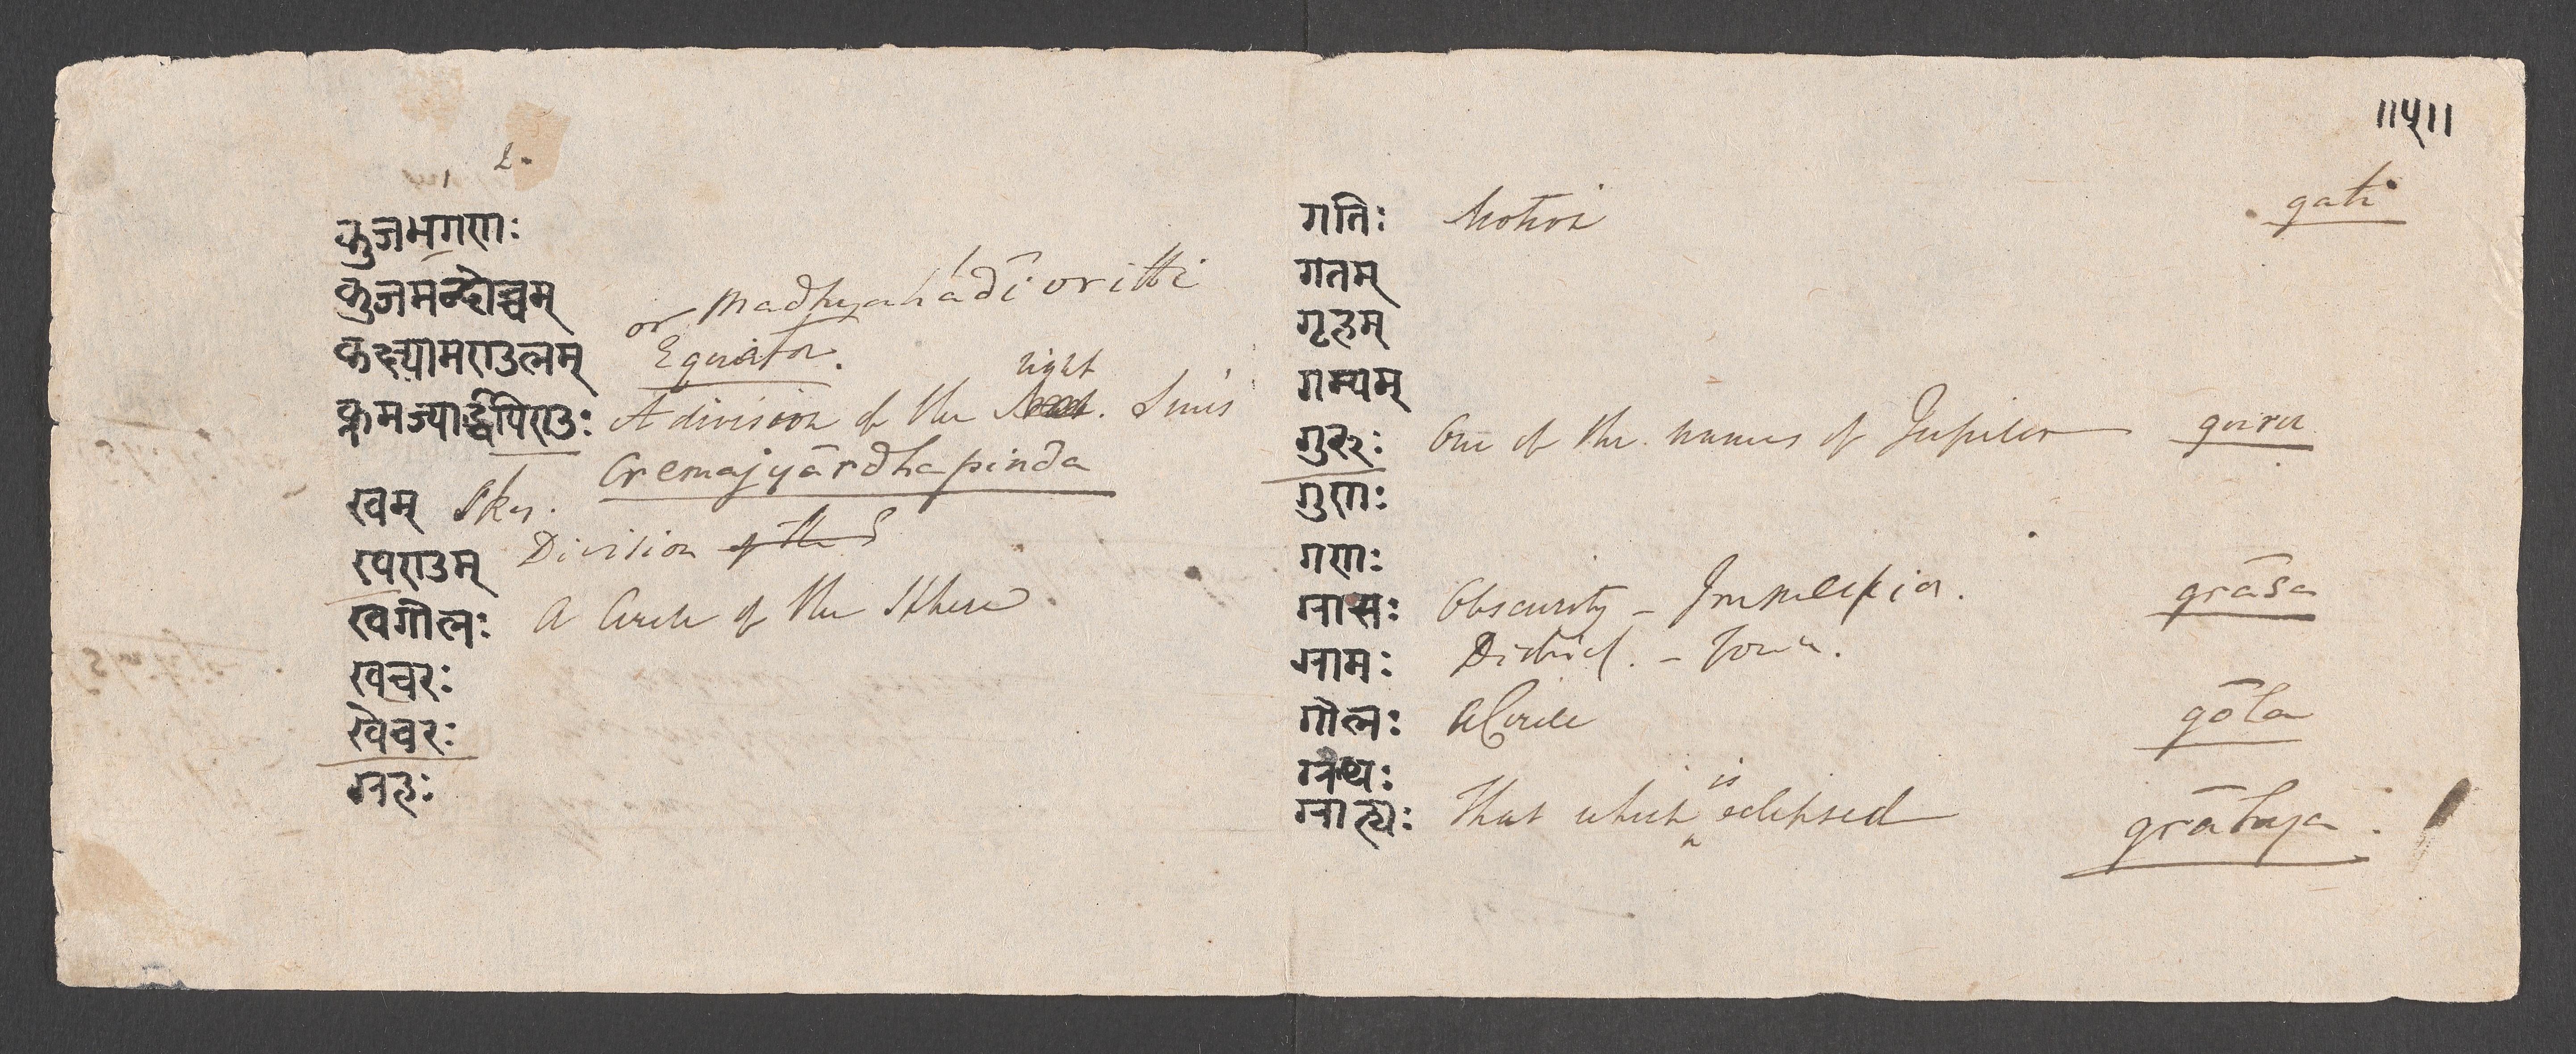 ॥५॥
2.
कुजभगणः
कुजमन्दोच्चम्
or Madhyanādi vritti
कक्ष्यामण्डलम् Equator.
right
क्रमज्यार्द्धपिण्डः A division of the . Sines
Cremajyārdhapinda
खम् Sky.
खण्डम् Division of the S
खगोलः A Circle of the Sphere
खचरः
खेचरः
ग्रहः
गतिः Motion gati
गतम्
गृहम्
गम्यम्
गुरुः One of the names of Jupiter guru
गुणः
गणः
ग्रासः Obscurity - Immersion. grāsa
ग्रामः District. - Town.
गोलः a Circle gōla
ग्रन्थः
is
ग्राह्यः That which eclipsed grāhya.